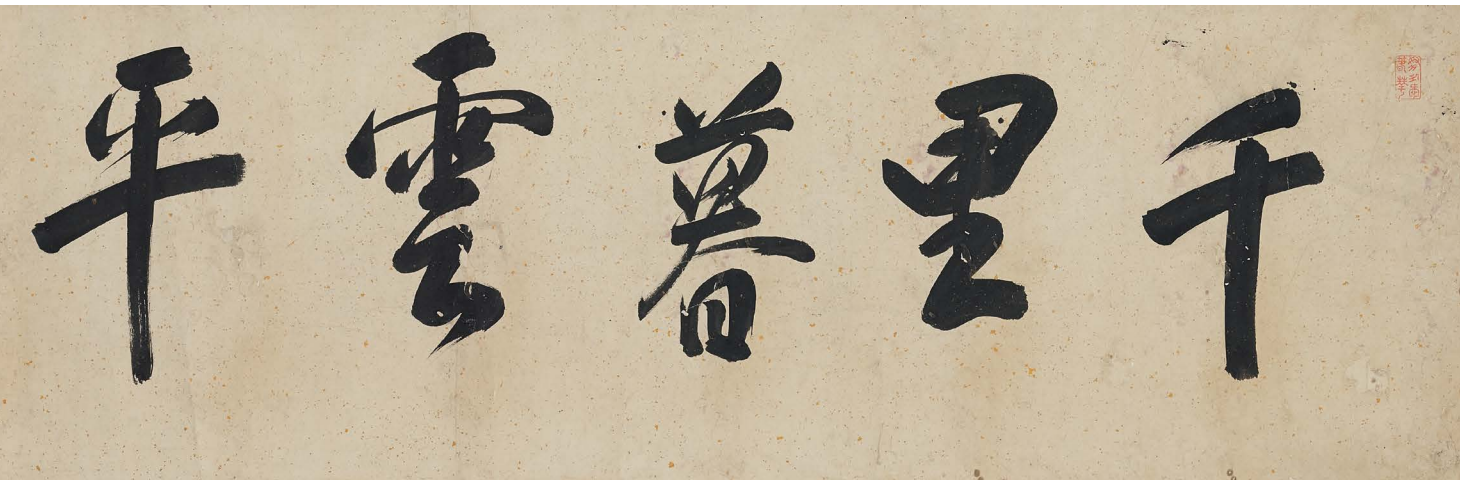 千里暮雲平